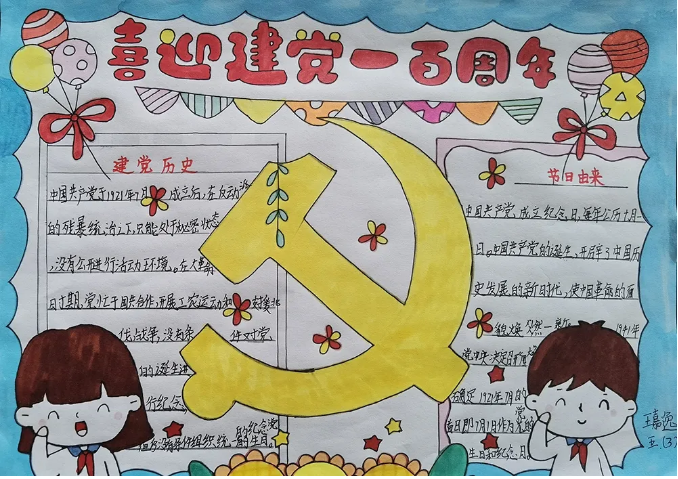 喜迎建党一百周年
建党历史
中国共产党于1921年7月 成立后,在反动
的残暴统治之下,只能处于秘密状态
,没有公开进行活动的环境。在大革命
日寸期,党忙于国共合作,开展工农运动和 支援北
伐战争,没有条 件对党
的诞生进
行纪念
组织统一的纪念党
的生日。
节日由来
中国共产党成立纪念日,每年公历七月一
日。中国共产党的诞生,开辟了中国历
史发展的新时代,使中国革命的面
貌焕然一新。 1941年
党中央决定
确定1921年7月的
首日即7月1日作为党的
生日和纪念日。
王嘉逸
五.(3)